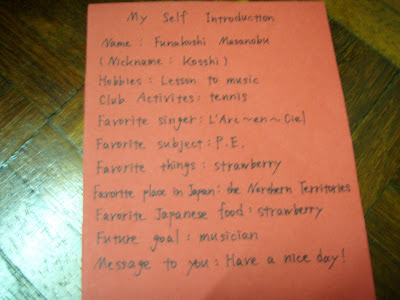 My Self Introduction
Name : Funakoshi Masanobu
(Nickname : Kosshi)
Hobbies : Lesson to music
Club Activites : tennis
Favorite singer : L'Arc～en～Ciel
Favorite subject : P.E.
Favorite things : strawberry
Favorite place in Japan : the Northern Territories
Favorite Japanese food : strawberry
Future goal : musician
Message to you : Have a nice day!